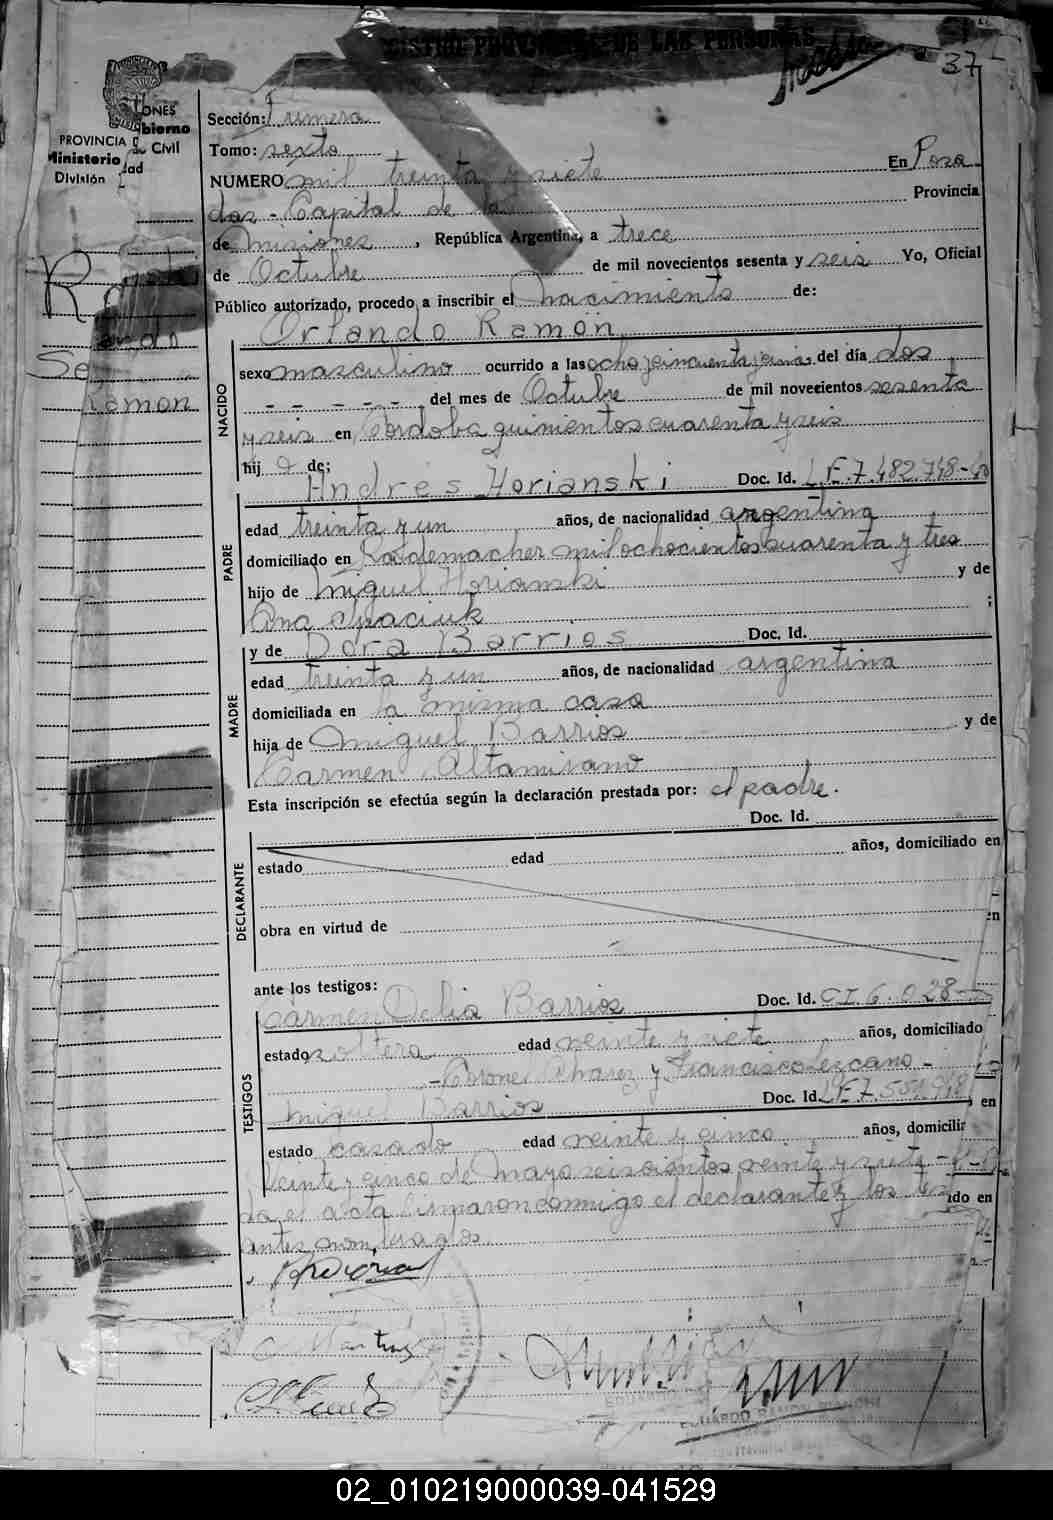 37
PROVINCIA
Ministerio
División
Civil
Sección: Primera
Tomo: sexto
NUMERO mil treinta y siete En Posa
das - Capital de la Provincia
de Misiones, República Argentina, a trece
de Octubre de mil novecientos sesenta y seis Yo, Oficial
Público autorizado, procedo a inscribir el nacimiento de:
Orlando Ramón
Ramon
NACIDO
sexo masculino ocurrido a las del día dos
- - - - - del mes de Octubre de mil novecientos sesenta
y seis en Córdoba quinientos cuarenta y seis
hij o de:
Andrés Horianski Doc. Id. L.E.7.482.748
PADRE
edad treinta y un años, de nacionalidad argentina
domiciliado en mil ochocientos cuarenta y tres
hijo de Miguel Horianski y de
Ana ;
y de Dora Barrios Doc. Id.
MADRE
edad treinta y un años, de nacionalidad argentina
domiciliada en la misma casa
hija de Miguel Barrios y de
Carmen Altamirano
Esta inscripción se efectúa según la declaración prestada por: el padre.
Doc. Id.
DECLARANTE
estado edad años, domiciliado en
obra en virtud de
ante los testigos:
Carmen Delia Barrios Doc. Id. C.I.6.028
TESTIGOS
estado soltera edad veinte y siete años, domiciliado
Coronel Chavez y Francisco Lezcano -
Miguel Barrios Doc. Id. L.E.7. en
estado casado edad veinte y cinco años, domicili
Veinte y cinco de Mayo seiscientos veinte y siete -
da el acta firmaron conmigo el declarante y los ido en
EDUARDO RAMON
02_010219000039-041529